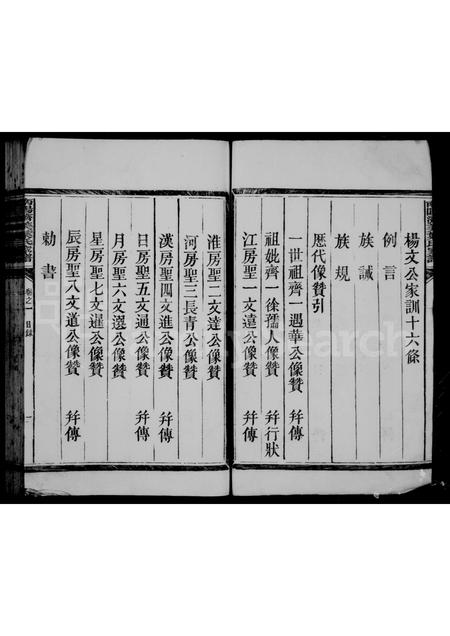 楊文公家訓十六條
例言
族誡
族規
歷代像贊引
一世祖齊一遇華公像贊 幷傳
祖妣齊一徐孺人像贊 幷行狀
江房聖一文遠公像贊 幷傳
淮房聖二文達公像贊
河房聖三長青公像贊
漢房聖四文進公像贊 幷傳
日房聖五文通公像贊 幷傳
月房聖六文選公像贊
星房聖七文暹公像贊
辰房聖八文道公像贊 幷傳
勅書
卷之一 目錄 一